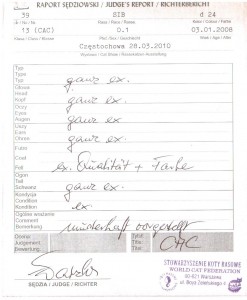 RAPORT SĘDZIOWSKI / JUDGE'S REPORT / RICHTERBERICHT
39 SIB d 24
13 (CAC) 0.1 03.01.2008
Częstochowa 28.03.2010
Typ
Type
Type
ganz ex.
Głowa
Head
Kopf
ganz ex.
Oczy
Eyes
Augen
ganz ex.
Uszy
Ears
Ohren
ganz ex.
Futro
Coat
Fell
ex. Qualität + Farbe
Ogon
Tail
Schwanz
ganz ex.
Kondycja
Condition
Kondition
ex.
Ogólne wrażenie
Comment
Bemerkung
musterhaft vorgestellt
Ocena
Judgement
Bewertung
Tytuł
Title
Titel
CAC
SĘDZIA / JUDGE / RICHTER
STOWARZYSZENIE KOTY RASOWE
WORLD CAT FEDERATION